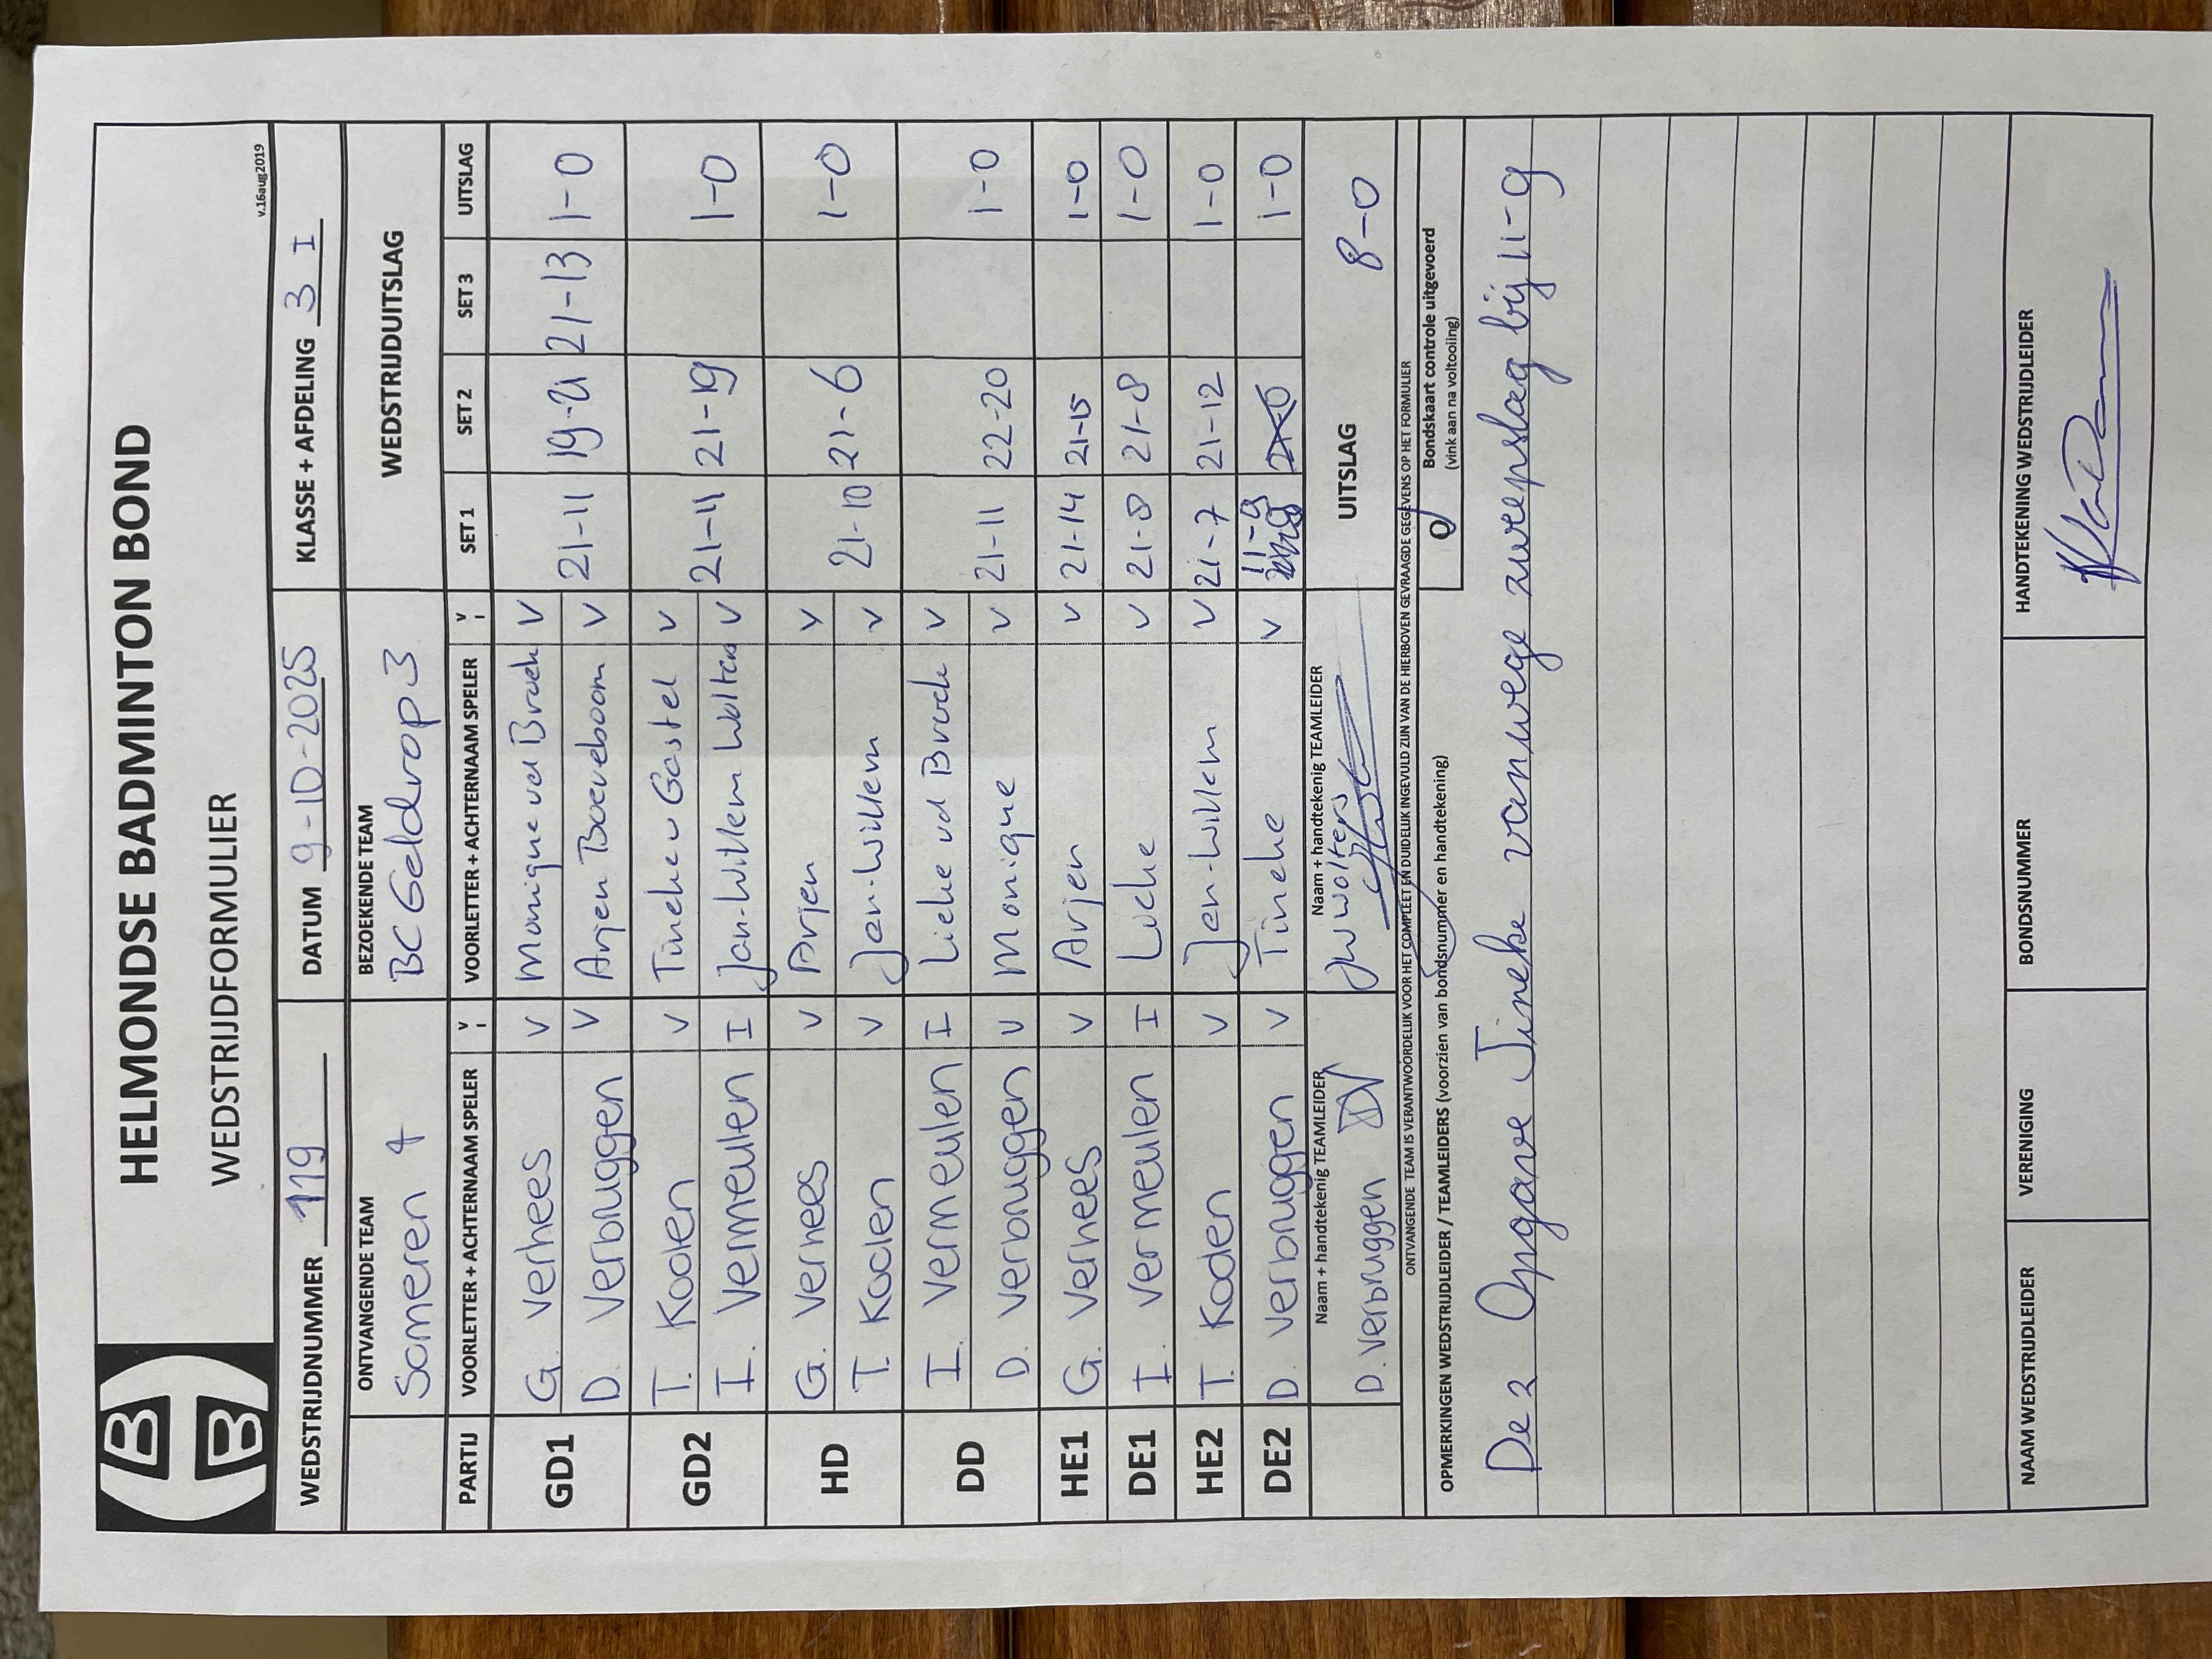 HELMONDSE BADMINTON BOND
WEDSTRIJDFORMULIER
v.16aug2019
WEDSTRIJDNUMMER 119 DATUM 9-10-2025 KLASSE + AFDELING 3 I
ONTVANGENDE TEAM BEZOEKENDE TEAM WEDSTRIJDUITSLAG
Someren 4 BC Geldrop 3
PARTIJ VOORLETTER + ACHTERNAAM SPELER V I VOORLETTER + ACHTERNAAM SPELER V I SET 1 SET 2 SET 3 UITSLAG
GD1 G. Verhees V Monique vd Broek V
D. Verbruggen V Arjen Boereboom V 21-11 19-21 21-13 1-0
GD2 T. Koolen V Tineke v Gastel V
I. Vermeulen I Jan-Willem Wolters V 21-11 21-19 1-0
HD G. Verhees V Arjen V
T. Koolen V Jan-Willem V 21-10 21-6 1-0
DD I. Vermeulen I Lieke vd Broek V
D. Verbruggen V Monique V 21-11 22-20 1-0
HE1 G. Verhees V Arjen V 21-14 21-15 1-0
DE1 I. Vermeulen I Lieke V 21-8 21-8 1-0
HE2 T. Koolen V Jan-Willem V 21-7 21-12 1-0
DE2 D. Verbruggen V Tineke V 11-9 1-0
Naam + handtekenig TEAMLEIDER Naam + handtekenig TEAMLEIDER UITSLAG 8-0
D. Verbruggen DV JW Wolters
ONTVANGENDE TEAM IS VERANTWOORDELIJK VOOR HET COMPLEET EN DUIDELIJK INGEVULD ZIJN VAN DE HIERBOVEN GEVRAAGDE GEGEVENS OP HET FORMULIER
OPMERKINGEN WEDSTRIJDLEIDER / TEAMLEIDERS (voorzien van bondsnummer en handtekening) Bondskaart controle uitgevoerd
(vink aan na voltooiing)
De 2 Opgave Tineke vanwege zweepslag bij 11-9
NAAM WEDSTRIJDLEIDER VERENIGING BONDSNUMMER HANDTEKENING WEDSTRIJDLEIDER